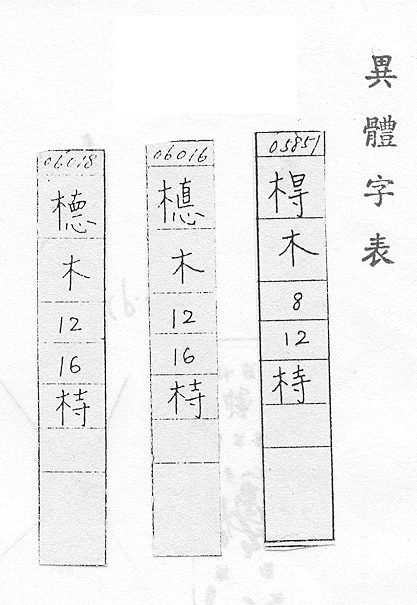 異體字表
05851
棏
木
8
12
㭙
06016
木
12
16
㭙
06018
木
12
16
㭙